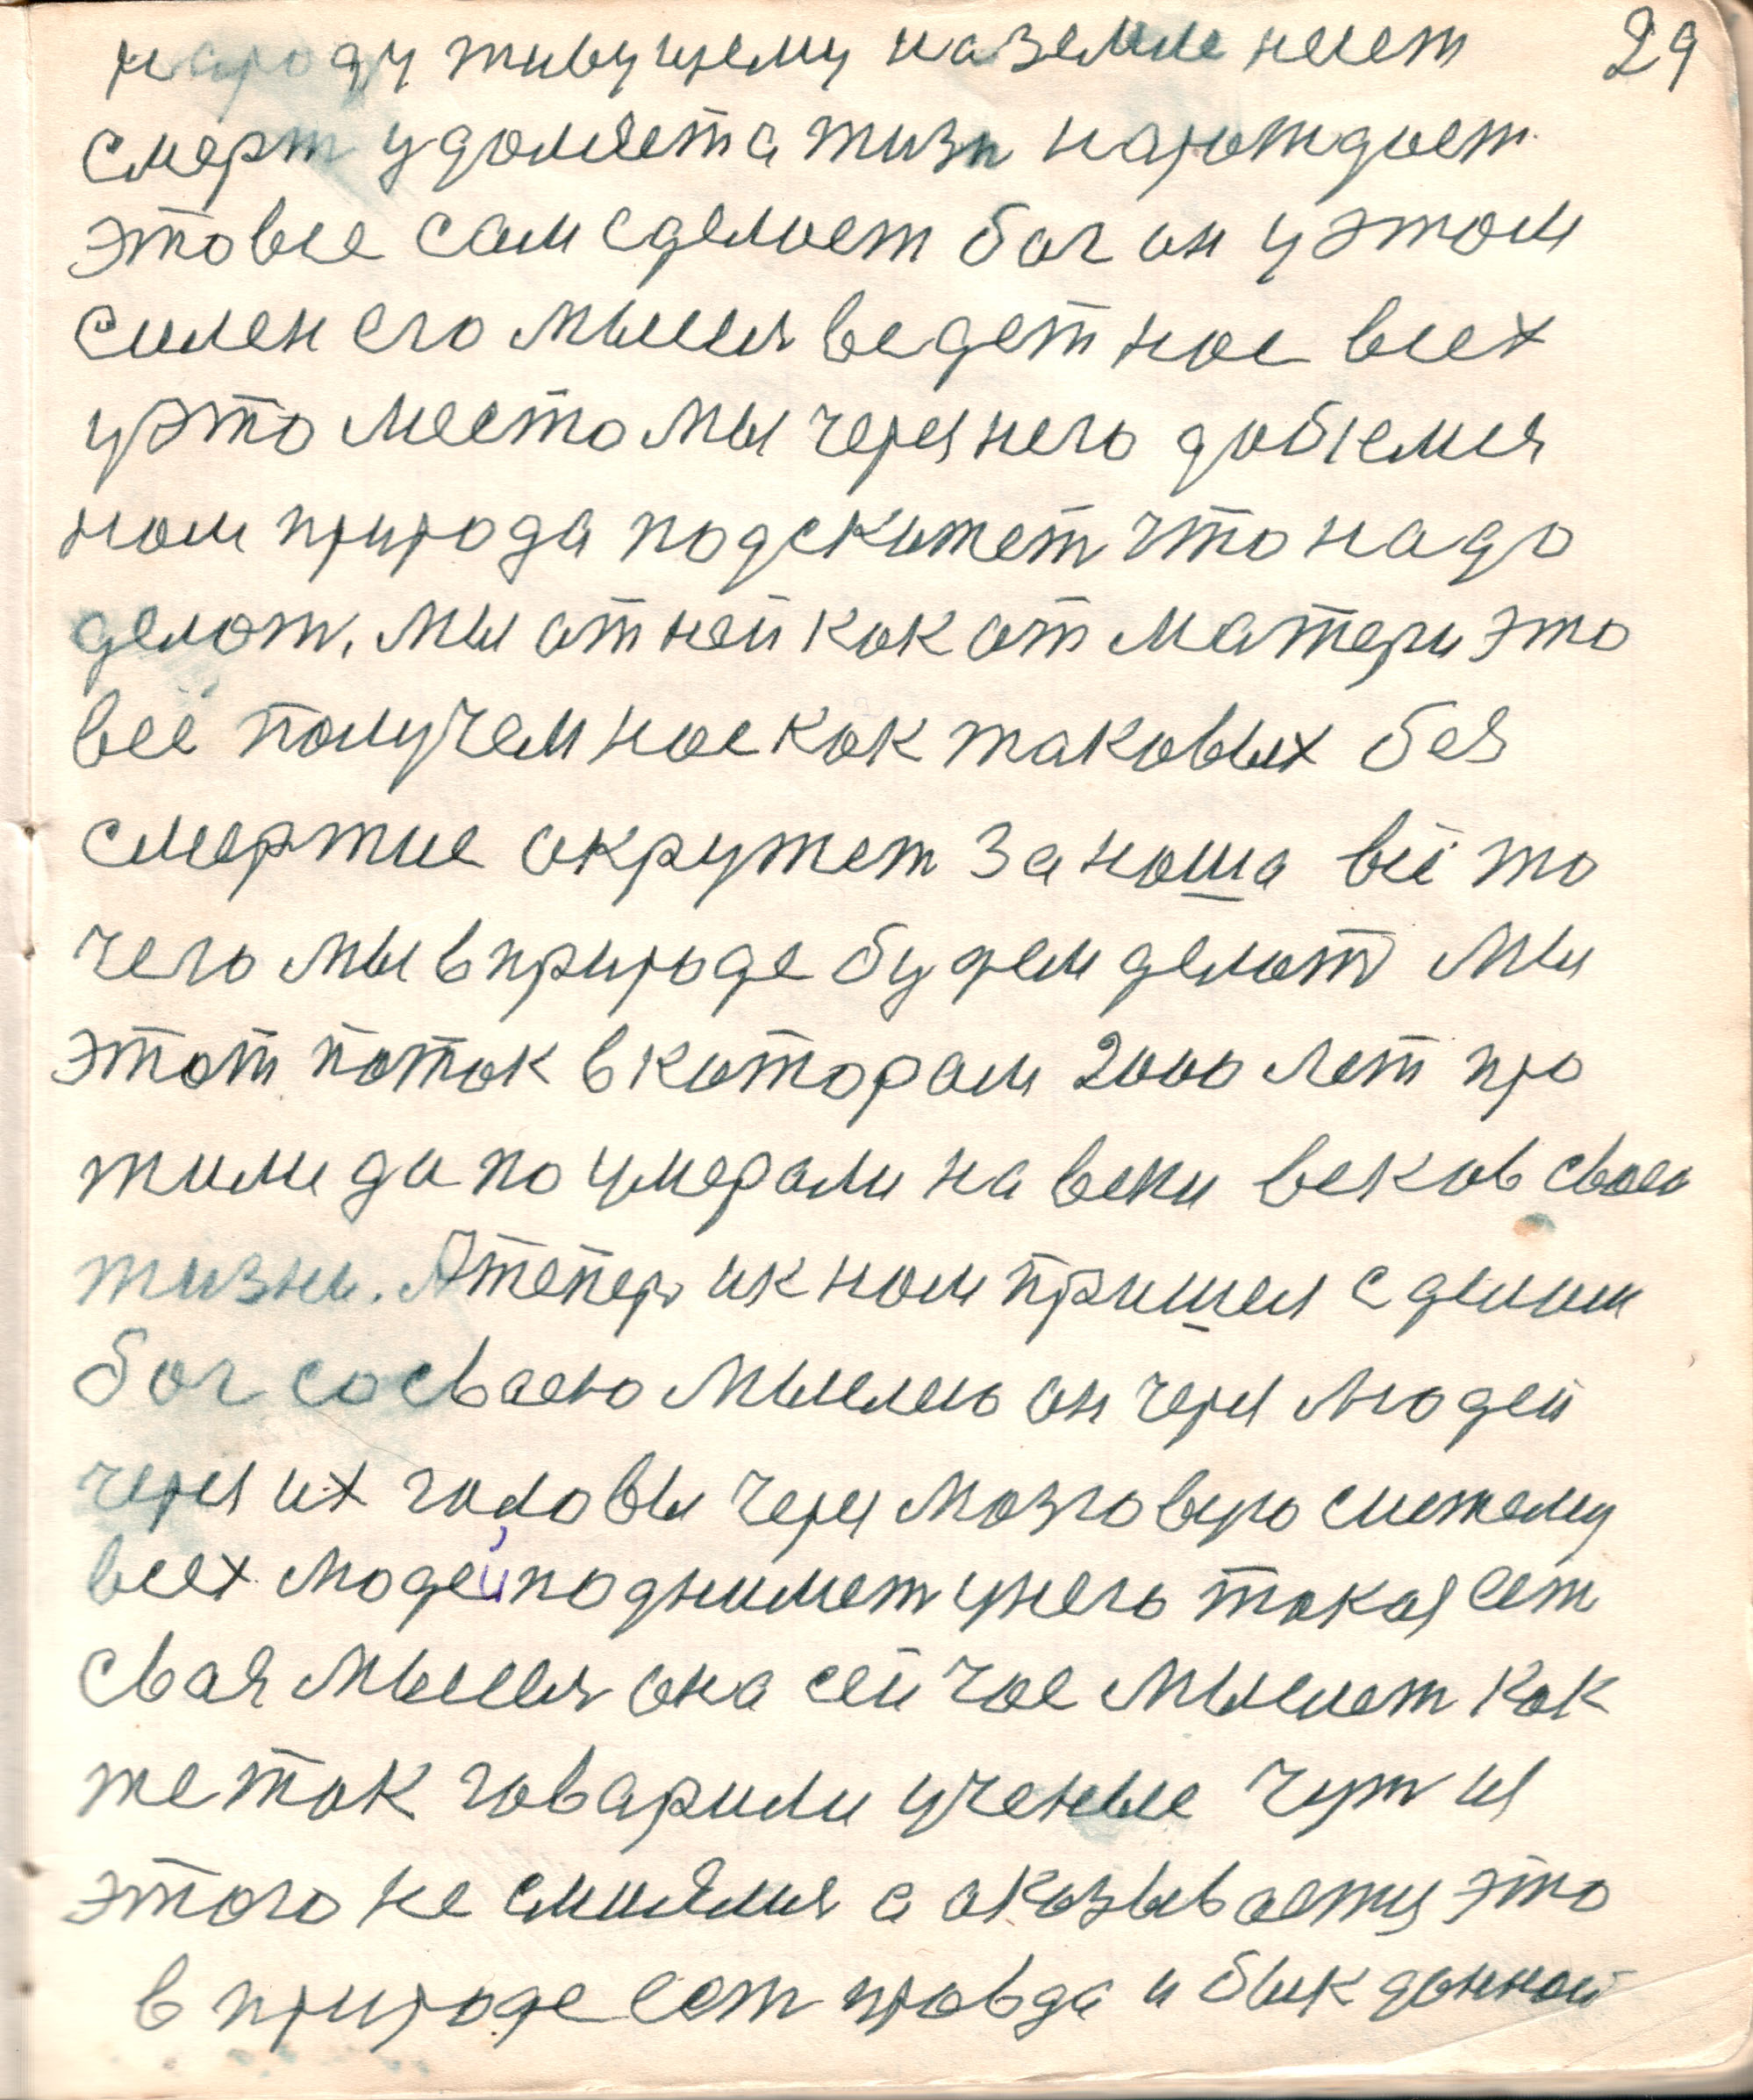 народу живущему на земле несет 29
смерт удоляет а жизн нарождает
это все сам сделает бог он у этом
силен его мысля ведет нас всех
у это место мы через него добьемся
нам природа подскажет что надо
делат, мы от ней как от матери это
всё получем нас как таковых без
смертие окружет за наша всё то
чего мы в природе будем делат мы
этот поток в котором 2000 лет про
жили да по умерали на веки веков своей
жизни. А тепер и к нам пришел с делам
бог со своею мыслею он через людей
через их головы через мозговую систему
всех людей поднимает у него такая ест
своя мысля она сейчас мыслет как
же так говарили ученые чут из
этого не смиялися а оказывается это
в природе ест правда и бик данной